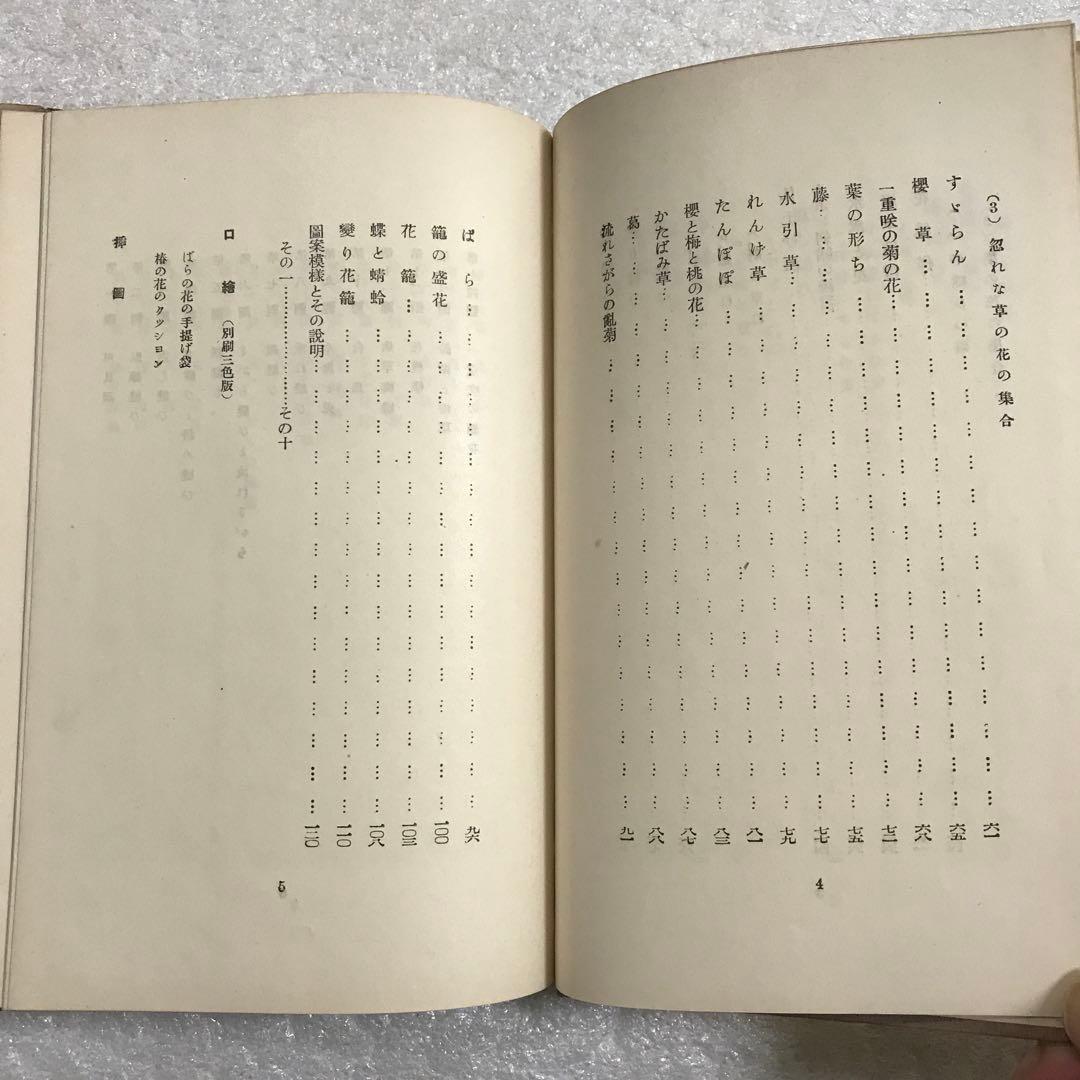 (3) 忽れな草の花の集合
すゞらん……………六一
櫻草……………六五
一重咲の菊の花……………六八
葉の形ち……………七二
藤……………七五
水引草……………七七
れんげ草……………七九
たんぽぽ……………八一
櫻と梅と桃の花……………八三
かたばみ草……………八七
葛……………八八
流れさがらの亂菊……………九一
4
ばら……………九六
籠の盛花……………一〇〇
花籠……………一〇三
蝶と蜻蛉……………一〇八
變り花籠……………一一〇
圖案模樣とその說明……………一二〇
その一……………その十
口繪（別刷三色版）
ばらの花の手提げ袋
椿の花のクツシヨン
揷圖
5